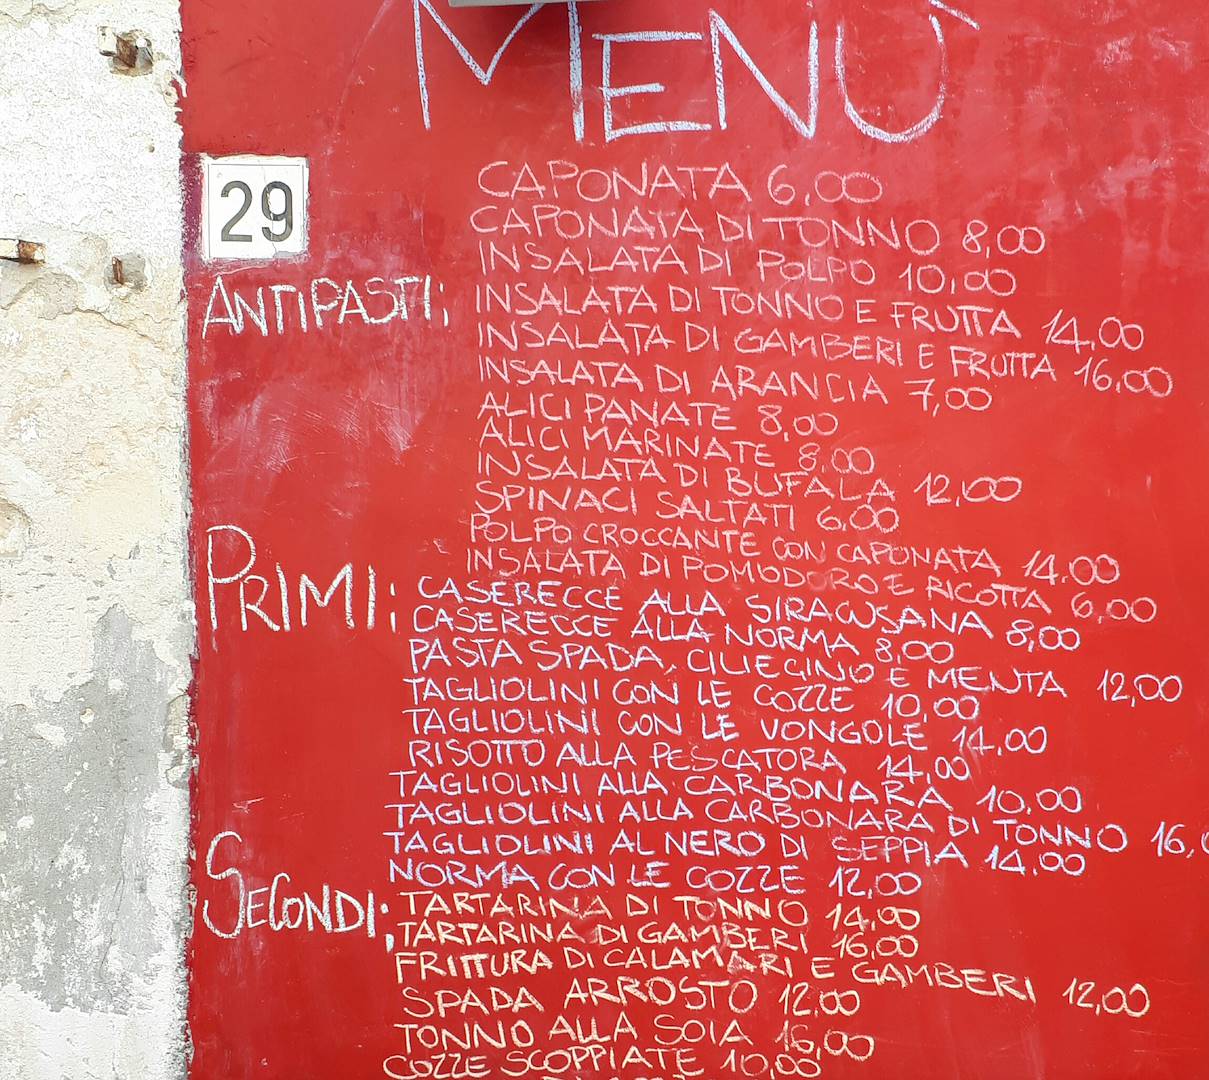 MENÙ
29
ANTIPASTI:
CAPONATA 6,00
CAPONATA DI TONNO 8,00
INSALATA DI POLPO 10,00
INSALATA DI TONNO E FRUTTA 14,00
INSALATA DI GAMBERI E FRUTTA 16,00
INSALATA DI ARANCIA 7,00
ALICI PANATE 8,00
ALICI MARINATE 8,00
INSALATA DI BUFALA 12,00
SPINACI SALTATI 6,00
POLPO CROCCANTE CON CAPONATA 14,00
INSALATA DI POMODORO E RICOTTA 6,00
PRIMI:
CASERECCE ALLA SIRACUSANA 8,00
CASERECCE ALLA NORMA 8,00
PASTA SPADA, CILIEGINO E MENTA 12,00
TAGLIOLINI CON LE COZZE 10,00
TAGLIOLINI CON LE VONGOLE 14,00
RISOTTO ALLA PESCATORA 14,00
TAGLIOLINI ALLA CARBONARA 10,00
TAGLIOLINI ALLA CARBONARA DI TONNO 16,0
TAGLIOLINI AL NERO DI SEPPIA 14,00
NORMA CON LE COZZE 12,00
SECONDI:
TARTARINA DI TONNO 14,00
TARTARINA DI GAMBERI 16,00
FRITTURA DI CALAMARI E GAMBERI 12,00
SPADA ARROSTO 12,00
TONNO ALLA SOIA 16,00
COZZE SCOPPIATE 10,00